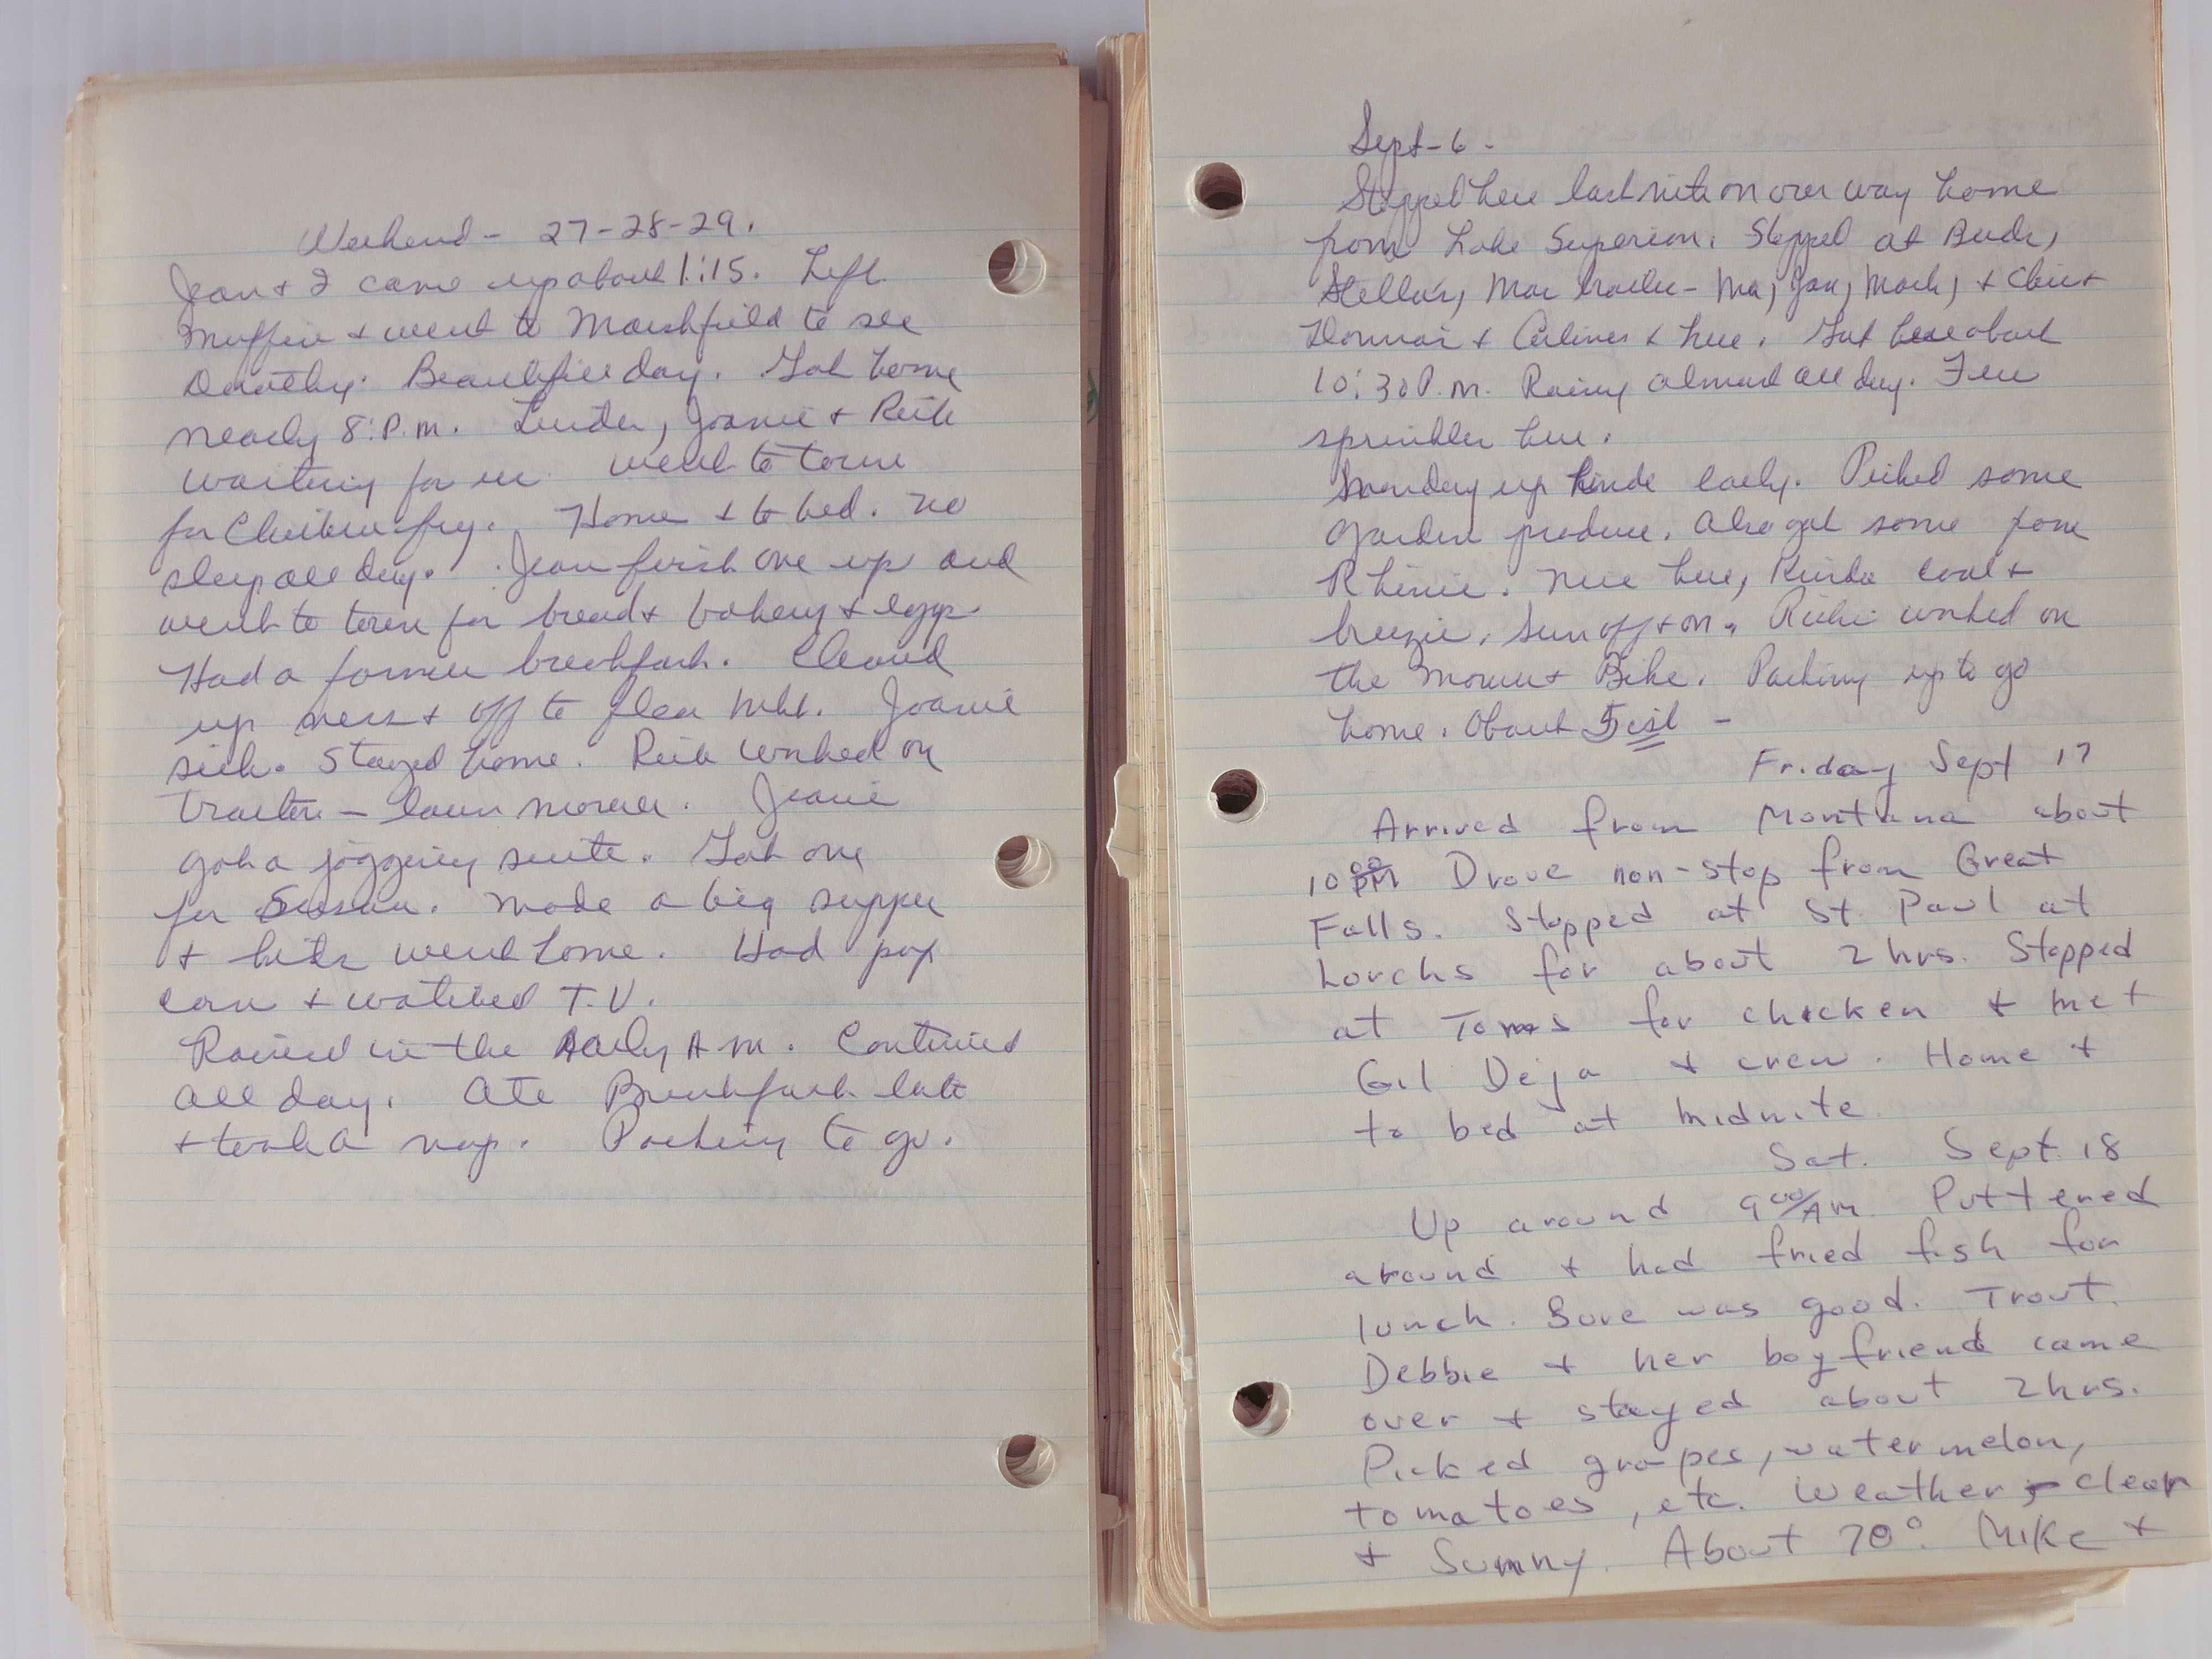 Weekend - 27-28-29.
Jean & I came up about 1:15. Left
Muffin & went to Marshfield to see
Dorothy. Beautifull day. Got home
nearly 8:P.M. Linda, Joanie & Rick
waiting for us. Went to town
for Chicken fry. Home & to bed. No
sleep all day. Jean first one up and
went to town for bread & bakery & eggs.
Had a farmer breakfast. Cleaned
up mess & off to flea mkt. Joanie
sick. Stayed home. Rick worked on
tractor - lawn mower. Jeanie
got a jogging suite. Got one
for Susan. Made a big supper
& kids went home. Had pop
corn & watched T.V.
Rained in the early A.M. Continued
all day. Ate Breakfast late
& took a nap. Packing to go.
Sept-6-
Stopped here last nite on our way home
from Lake Superior. Stopped at Buds,
Stella's, Mac trailer - Ma, Jan, Mark, &
Donna's & Arlines & here. Got here about
10:30 P.M. Rainy almost all day. Few
sprinkles here.
Monday up kinda early. Picked some
garden produce. Also got some from
Rhinie. Nice here, Kinda cool &
breezie. Sun off & on. Richie worked on
the Mower & Bike. Packing up to go
home. About 5ish -
Friday Sept 17
Arrived from Montana about
10 00 PM Drove non-stop from Great
Falls. Stopped at St Paul at
Lorchs for about 2 hrs. Stopped
at Toms for chicken & met
Gil Deja & crew. Home &
to bed at midnite.
Sat. Sept. 18
Up around 9 00/AM. Puttered
around & had fried fish for
lunch. Sure was good. Trout.
Debbie & her boyfriend came
over & stayed about 2 hrs.
Picked grapes, watermelon,
tomatoes, etc. Weather - clear
& Sunny. About 70°. Mike &